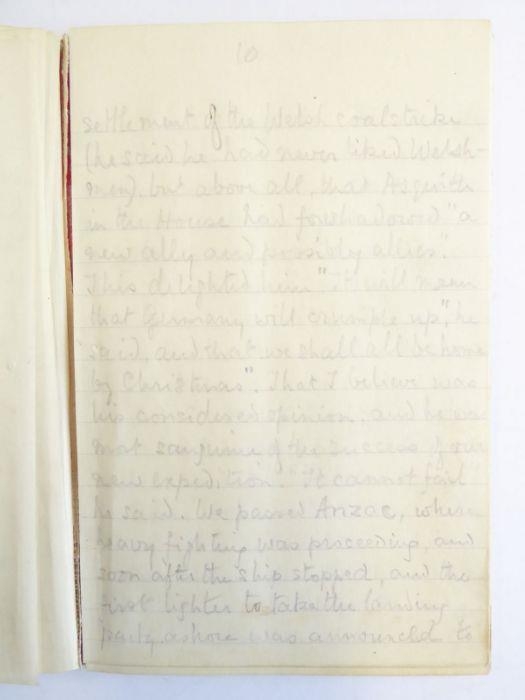 10
settlement of the Welsh coalstrike
(he said he had never liked Welsh-
men), but above all, that Asquith
in the House had foreshadowed "a
new ally and possibly allies".
This delighted him "it will mean
that Germany will crumple up", he
said, and that we shall all be home
by Christmas". That I believe was
his considered opinion, and he was
most sanguine of the success of our
new expedition. "It cannot fail"
he said. We passed Anzac, where
heavy fighting was proceeding, and
soon after the ship stopped, and the
first lighter to take the landing
party ashore was announced to